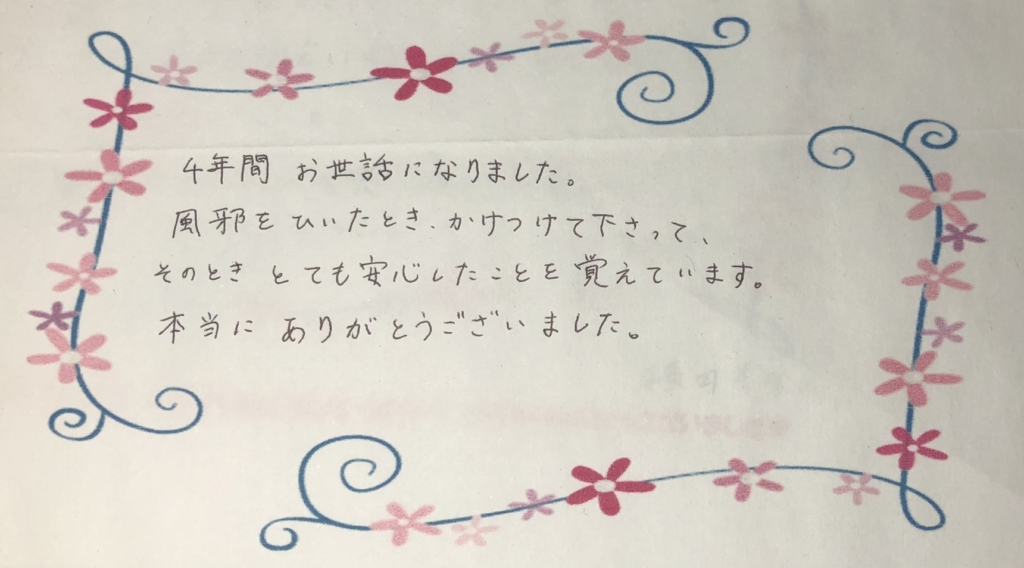 4年間 お世話になりました。
風邪を ひいたとき、かけつけて下さって、
そのとき とても安心したことを 覚えています。
本当に ありがとうございました。